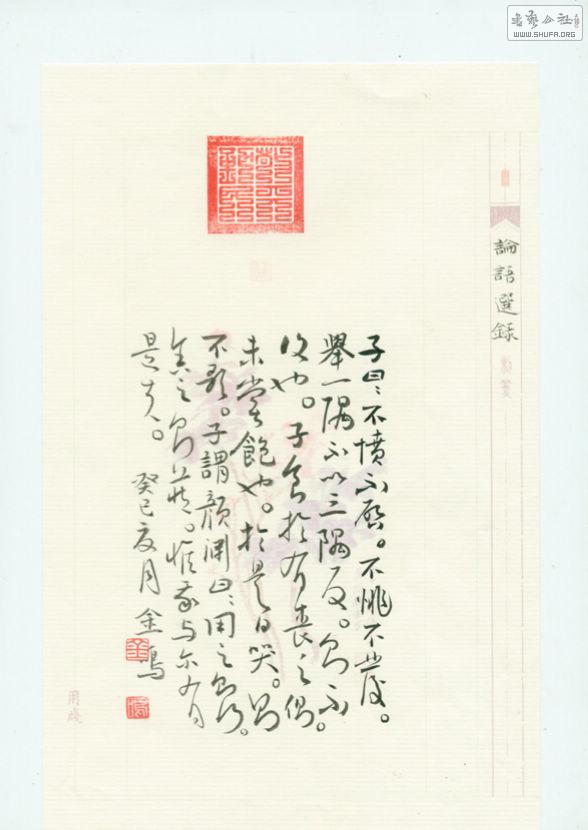 書藝公社
WWW.SHUFA.ORG
論語選録
子曰：不憤不啟。不悱不發。
舉一隅不以三隅反。則不
復也。子食於有喪之側
未嘗飽也。於是日哭。則
不歌。子謂顏淵曰：用之則行。
舍之則藏。惟我與爾有
是夫。
癸巳夏月金鳴
用牋